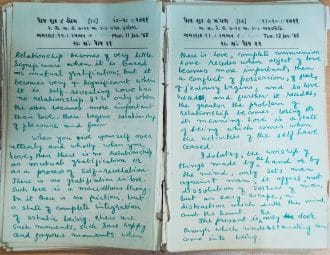 Relationship becomes of very little
significance when it is based
on mutual gratification, but it
becomes very significant when
it is self-revealing. Love has
no relationship, it is only when
the other becomes more important
than love, there begins relationship
of pleasure and pain.
When you give yourself over
utterly and wholly when you
love, then there is no relationship
as mutual gratification or
as a process of self-revelation.
There is no gratification in love.
Such love is a marvellous thing.
In it there is no friction, but
a state of complete integration
of ecstatic being. There are
such moments, such rare happy
and joyous moments when
12
Tue. 12 Jan.
there is love, complete communion.
Love recedes when object of love
becomes more important, then
a conflict of possessions, of fear,
of jealousy begins and so love
recedes, the further it recedes,
the greater the problem of
relationship becomes, losing its
its meaning. Love is a state
of being which comes when
the activities of the self have
ceased.
Idolatry, the worship of
things made by hand or by
the mind, only sets man
against man; it offers not
dissolution of sorrow of man
but an easy escape, a
distraction which dulls the mind
and the heart.
The present is only the door
through which understanding can
come into being.